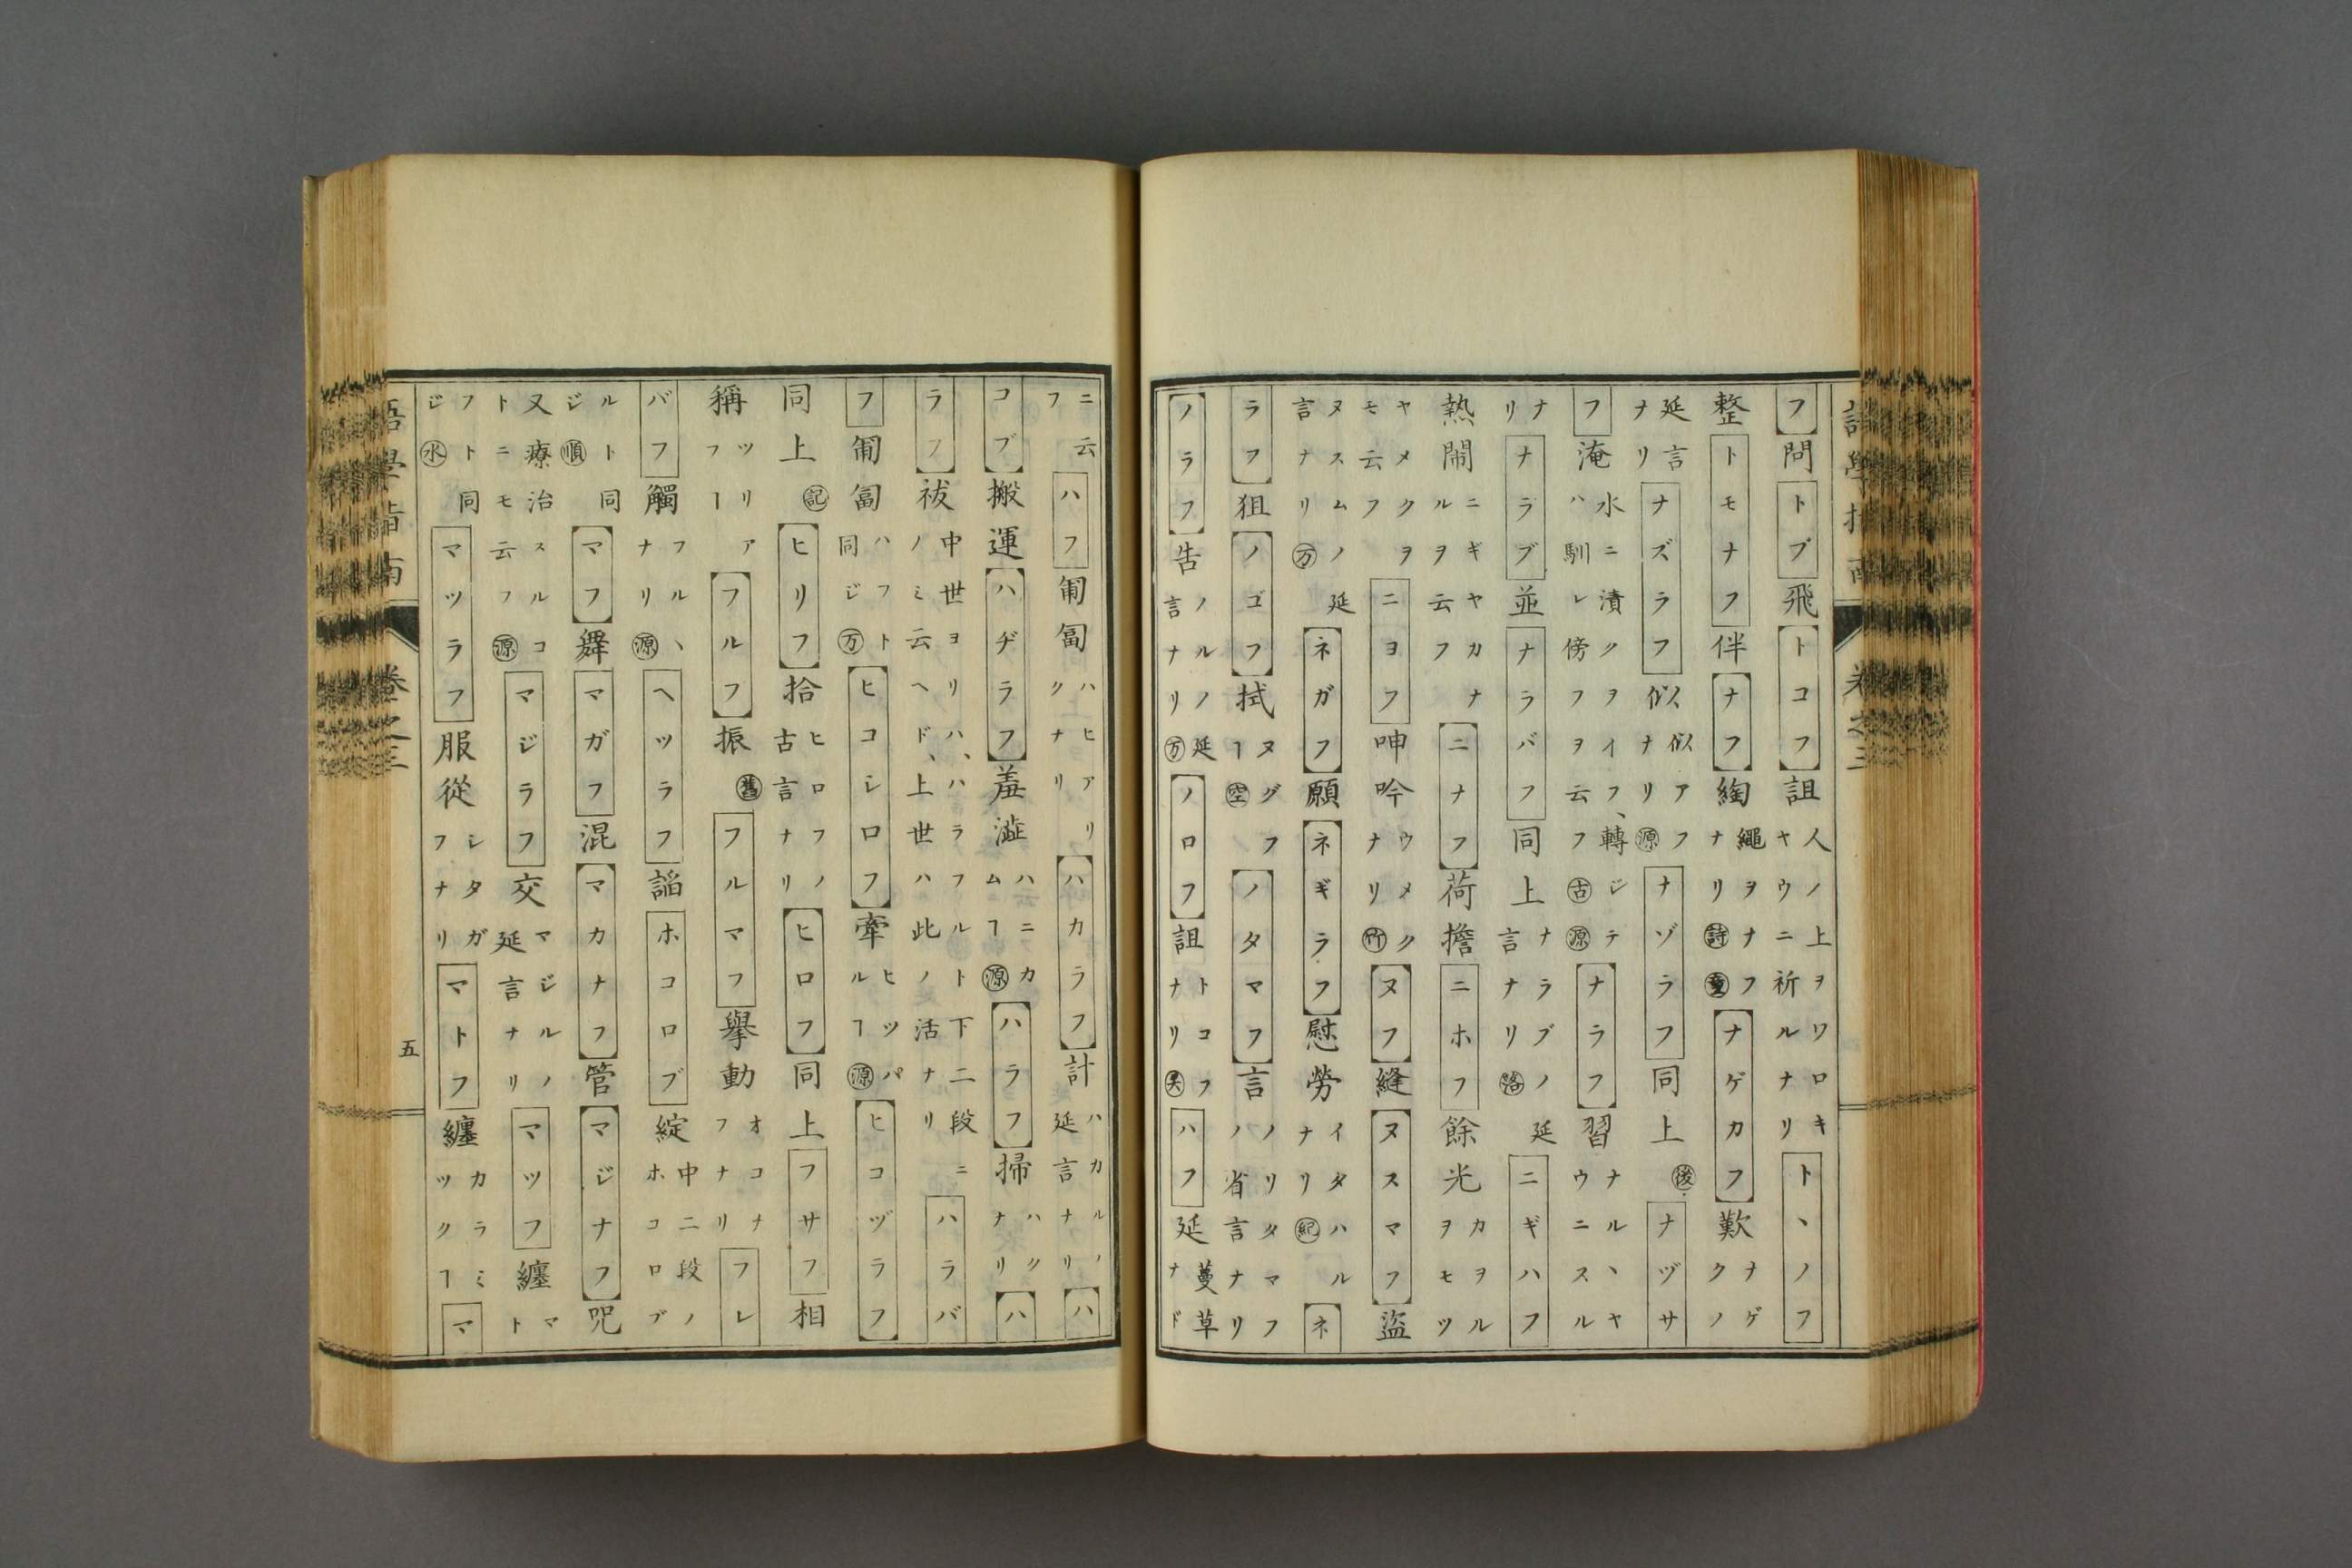 フ問トブ飛トコフ詛人ノ上ヲワロキヤウニ祈ルナリトヽノフ
整トモナフ伴ナフ綯繩ヲナフナリ詩童ナゲカフ歎ナゲクノ
延言ナリナズラフ似似アフナリ源ナゾラフ同上後ナヅサ
フ淹水ニ漬クヲイフ、轉ジテハ馴レ傍フヲ云フ古源ナラフ習ナルヽヤウニスル
ナリナラブ並ナラバフ同上ナラブノ延言ナリ落ニギハフ
熱鬧ニギヤカナルヲ云フニナフ荷擔ニホフ餘光カヲルヲモツ
ヤメクヲモ云フニヨフ呻吟ウメクナリ竹ヌフ縫ヌスマフ盜
ヌスムノ延言ナリ万ネガフ願ネギラフ慰勞イタハルナリ紀ネ
ラフ狙ノゴフ拭ヌグフヿ空ノタマフ言ノリタマフノ省言ナリ
ノラフ告ノルノ延言ナリ万ノロフ詛トコフナリハフ延蔓草ナド
ニ云フハフ匍匐ハヒアリクナリハカラフ計ハカルノ延言ナリハ
コブ搬運ハヂラフ羞澁ハニカムヿ源ハラフ掃ハクナリハ
ラフ祓中世ヨリハ、ハラフルト下二段ニノミ云ヘド、上世ハ此ノ活ナリハラバ
フ匍匐ハフト同ジ万ヒコシロフ牽ヒツパルヿ源ヒコヅラフ
同上記ヒリフ拾ヒロフノ古言ナリヒロフ同上フサフ相
稱ツリアフヿフルフ振舊フルマフ擧動オコナフナリフレ
バフ觸フルヽナリ源ヘツラフ諂ホコロブ綻中二段ノホコロブ
ルト同ジ順マフ舞マガフ混マカナフ管マジナフ咒
又療治スルコトニモ云フ源マジラフ交マジルノ延言ナリマツフ纏マト
フト同ジ水マツラフ服從シタガフナリマトフ纏カラミツクヿマ
語學指南 卷之三 五